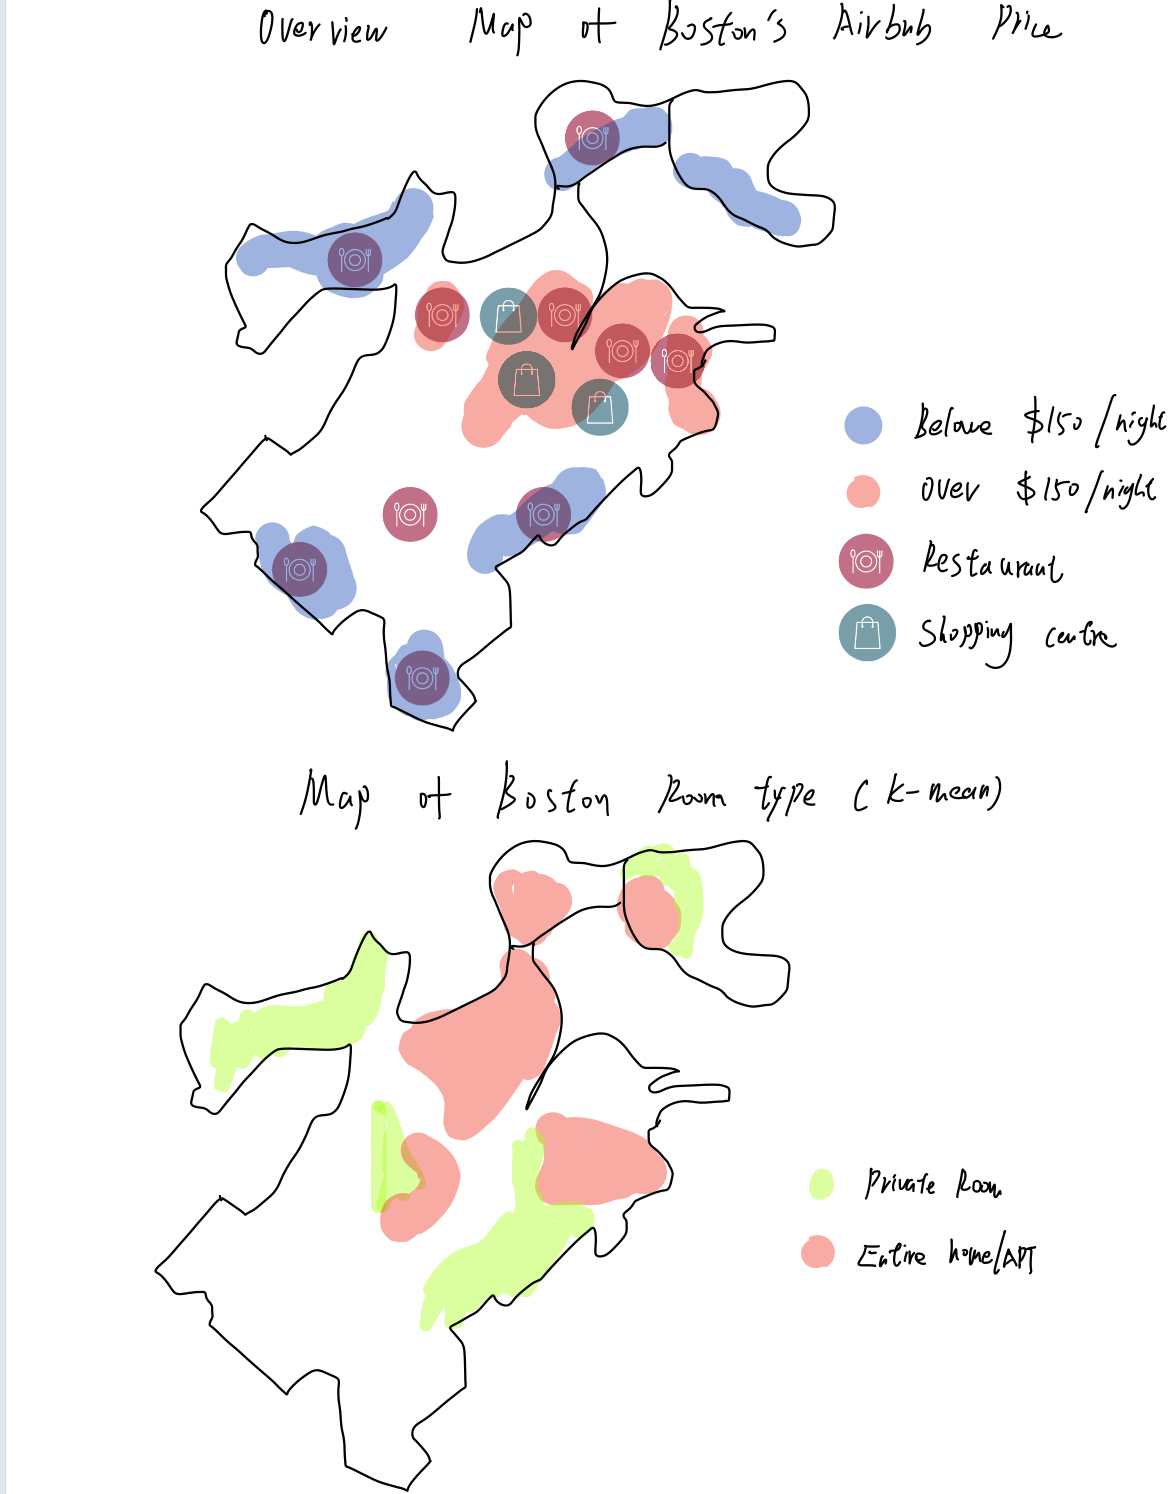 Overview Map of Boston's Airbnb Price
Below $150/night
Over $150/night
Restaurant
Shopping centre
Map of Boston Room type (K-mean)
Private Room
Entire home/APT